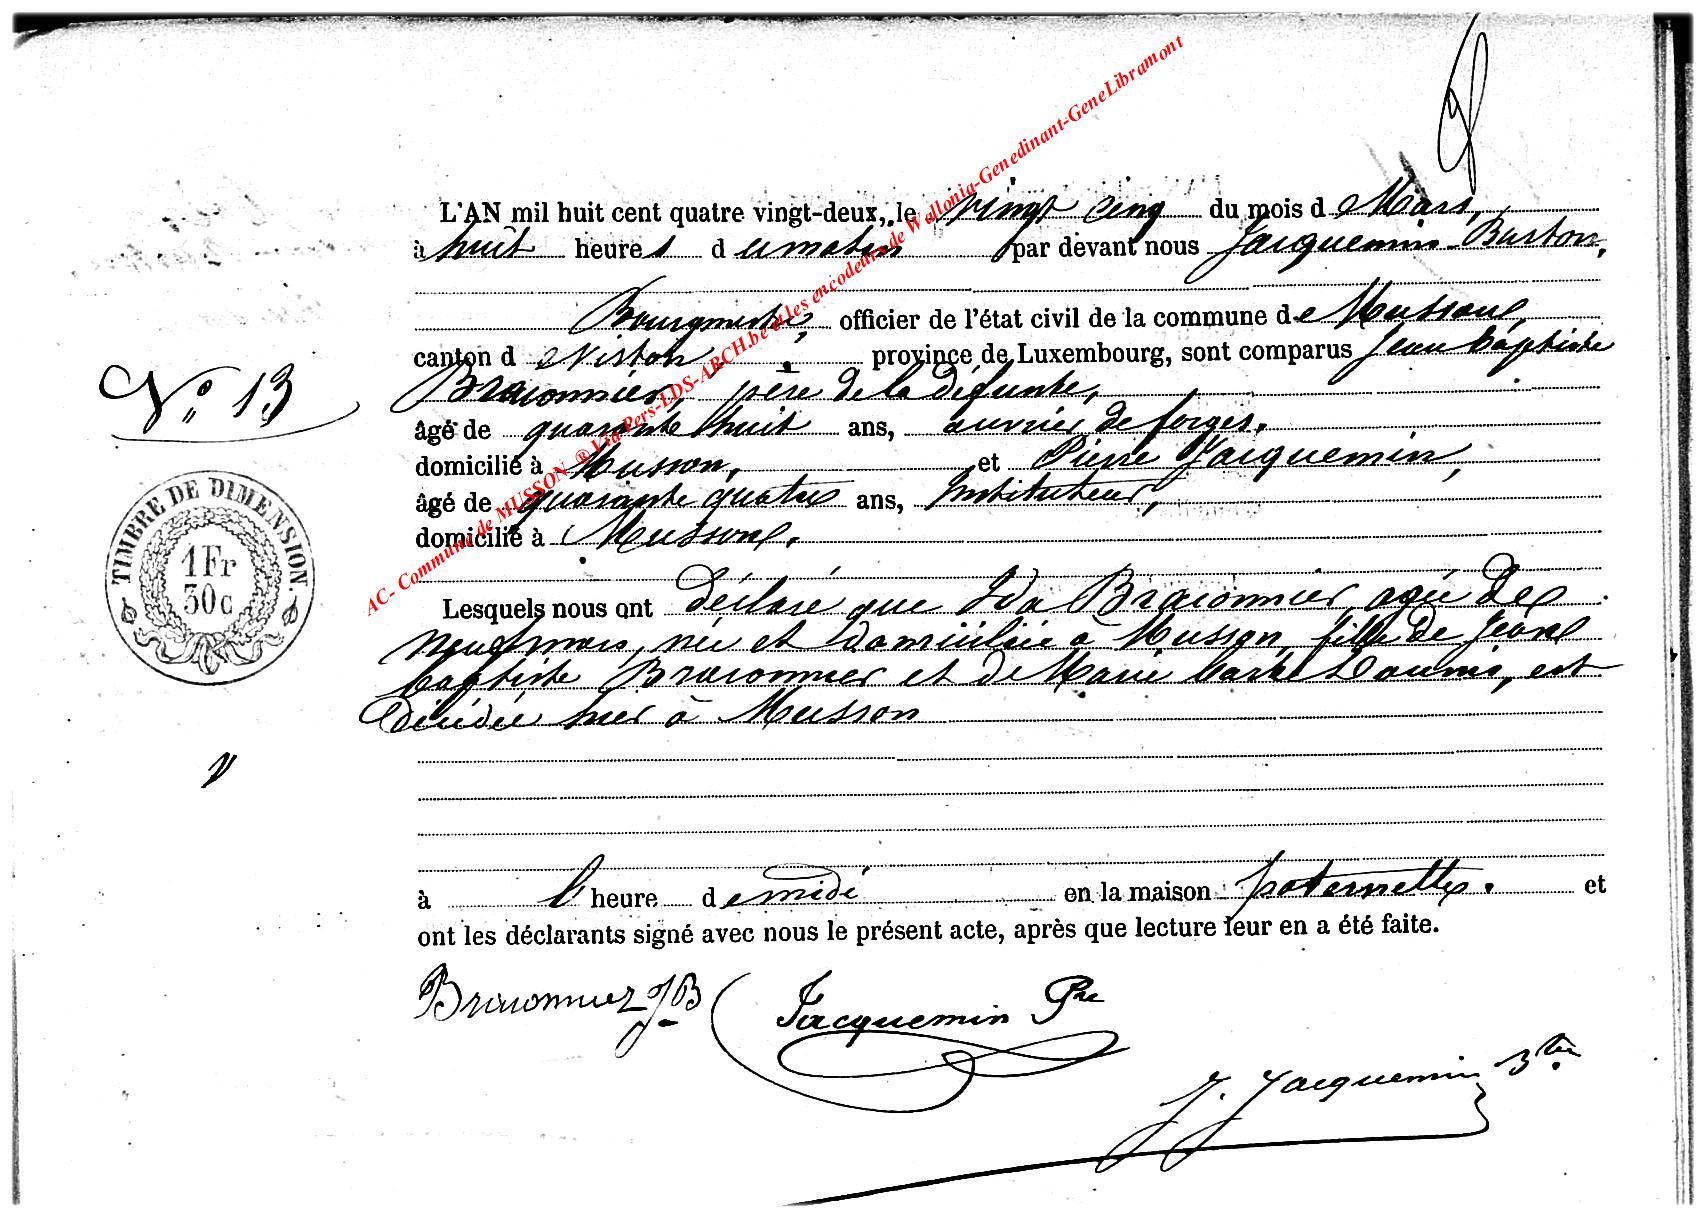 AC- Commune de MUSSON ® Via Pers-LDS-ARCH.be et les encodeurs de Wallonia-Genedinant-GeneLibramont
L'AN mil huit cent quatre vingt-deux, le vingt cinq du mois d e Mars,
à huit heure s d u matin par devant nous Jacquemin-Burton,
Bourgmestre, officier de l'état civil de la commune d e Musson,
canton d e Virton, province de Luxembourg, sont comparus Jean baptiste
Braconnier, père de la défunte,
âgé de quarante huit ans, ouvrier de forges,
domicilié à Musson, et Pierre Jacquemin,
âgé de quarante quatre ans, Instituteur,
domicilié à Musson.
N° 13
TIMBRE DE DIMENSION.
1Fr
30c
Lesquels nous ont déclaré que Ida Braconnier, agée de
neuf mois, née et domiciliée à Musson, fille de Jean
baptiste Braconnier et de Marie barbe, est
décédée hier à Musson
à l' heure d e midi en la maison paternelle. et
ont les déclarants signé avec nous le présent acte, après que lecture leur en a été faite.
Braconnier JB
Jacquemin Pre
J. Jacquemin Bton